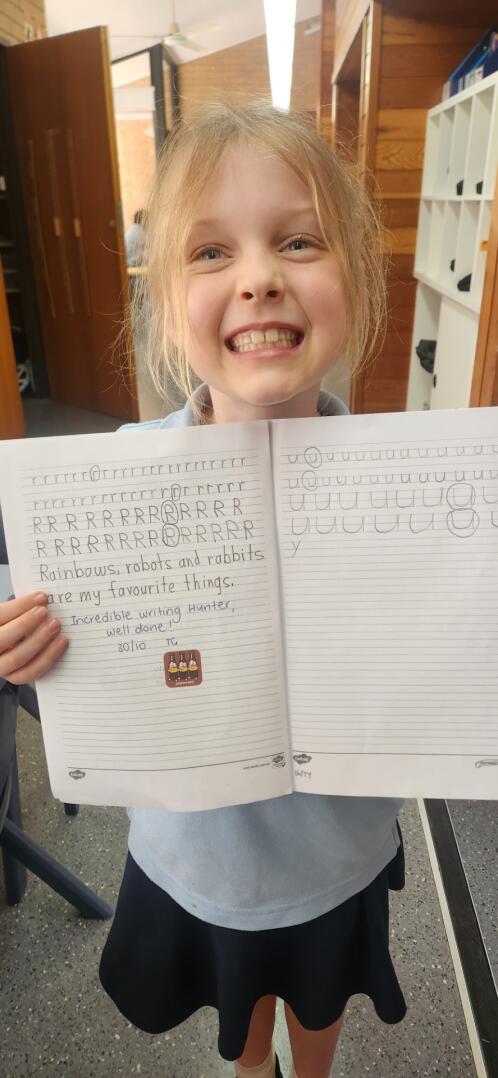 r r r r r r r r r r r r r r r r r r r r r
r r r r r r r r r r r r r r r r r r r r
R R R R R R R R R R R R R
R R R R R R R R R R R R R R
Rainbows, robots and rabbits
are my favourite things.
Incredible writing Hunter,
well done!
30/10 TG
u u u u u u u u u u u u u u u u
u u u u u u u u u u u u u u
U U U U U U U U
U U U U U U U U
y